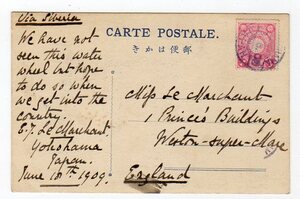 Via Siberia
CARTE POSTALE.
きかは便郵
We have not
seen this water
wheel but hope
to do so when
we get into the
country.
E. J. Le Marchant.
Yokohama
Japan.
June 10th 1909.
Miss Le Marchant
1 Princes Buildings
Weston-super-Mare
England